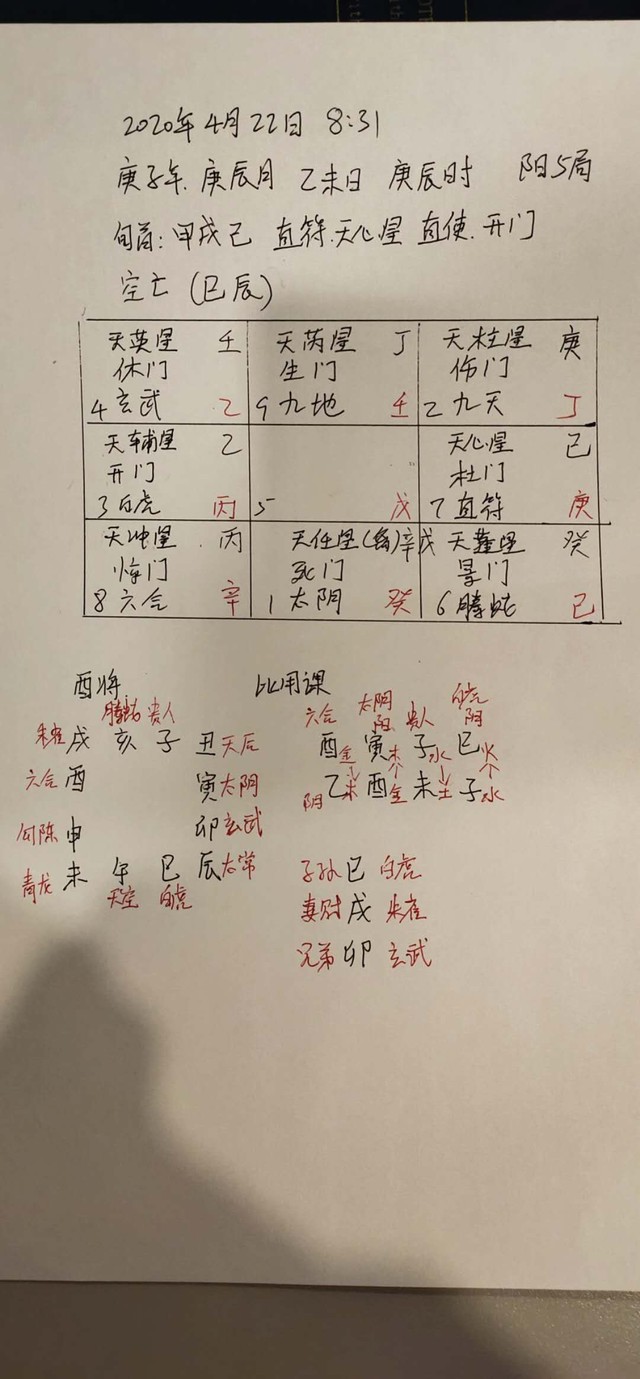 2020年4月22日 8:31
庚子年. 庚辰月 乙未日 庚辰时 阳5局
旬首: 甲戌己 直符.天心星 直使.开门
空亡 (巳辰)
天英星 壬 天芮星 丁 天柱星 庚
休门 生门 伤门
4 玄武 乙 9 九地 壬 2 九天 丁
天辅星 乙 天心星 己
开门 杜门
3 白虎 丙 5 戊 7 直符 庚
天冲星 丙 天任星(禽)辛戊 天蓬星 癸
惊门 死门 景门
8 六合 辛 1 太阴 癸 6 腾蛇 己
酉将 比用课
腾蛇 贵人 六合 太阴 贵人 白虎
阳 阴
朱雀 戌 亥 子 丑 天后 酉金 寅木 子水 巳火
↓ ↑ ↓ ↑
六合 酉 寅 太阴 阴 乙木 酉金 未土 子水
勾陈 申 卯 玄武
青龙 未 午 巳 辰 太常 子孙 巳 白虎
天空 白虎
妻财 戌 朱雀
兄弟 卯 玄武